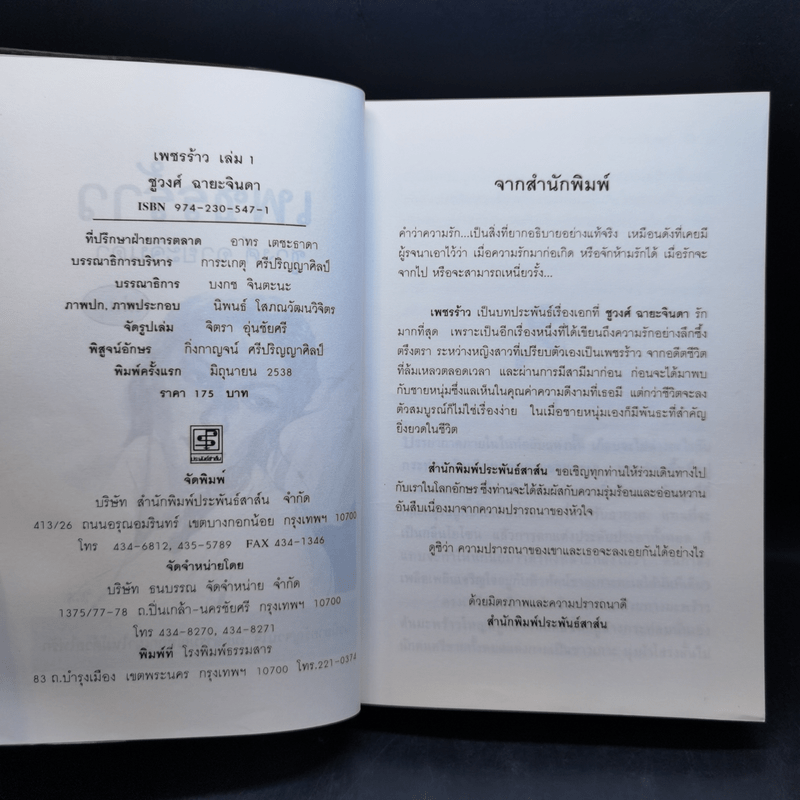 เพชรร้าว เล่ม 1
ชูวงศ์ ฉายะจินดา
ISBN 974-230-547-1
ที่ปรึกษาฝ่ายการตลาด อาทร เตชะธาดา
บรรณาธิการบริหาร การะเกตุ ศรีปริญญาศิลป์
บรรณาธิการ บงกช จินตะนะ
ภาพปก. ภาพประกอบ นิพนธ์ โสภณวัฒนวิจิตร
จัดรูปเล่ม จิตรา อุ่นชัยศรี
พิสูจน์อักษร กิ่งกาญจน์ ศรีปริญญาศิลป์
พิมพ์ครั้งแรก มิถุนายน 2538
ราคา 175 บาท
ประพันธ์สาส์น
จัดพิมพ์
บริษัท สำนักพิมพ์ประพันธ์สาส์น จำกัด
413/26 ถนนอรุณอมรินทร์ เขตบางกอกน้อย กรุงเทพฯ 10700
โทร 434-6812, 435-5789 FAX 434-1346
จัดจำหน่ายโดย
บริษัท ธนบรรณ จัดจำหน่าย จำกัด
1375/77-78 ถ.ปิ่นเกล้า-นครชัยศรี กรุงเทพฯ 10700
โทร 434-8270, 434-8271
พิมพ์ที่ โรงพิมพ์ธรรมสาร
83 ถ.บำรุงเมือง เขตพระนคร กรุงเทพฯ 10700 โทร.221-0374
จากสำนักพิมพ์
คำว่าความรัก...เป็นสิ่งที่ยากอธิบายอย่างแท้จริง เหมือนดังที่เคยมี
ผู้รจนาเอาไว้ว่า เมื่อความรักมาก่อเกิด หรือจักห้ามรักได้ เมื่อรักจะ
จากไป หรือจะสามารถเหนี่ยวรั้ง...
เพชรร้าว เป็นบทประพันธ์เรื่องเอกที่ ชูวงศ์ ฉายะจินดา รัก
มากที่สุด เพราะเป็นอีกเรื่องหนึ่งที่ได้เขียนถึงความรักอย่างลึกซึ้ง
ตรึงตรา ระหว่างหญิงสาวที่เปรียบตัวเองเป็นเพชรร้าว จากอดีตชีวิต
ที่ล้มเหลวตลอดเวลา และผ่านการมีสามีมาก่อน ก่อนจะได้มาพบ
กับชายหนุ่มซึ่งแลเห็นในคุณค่าความดีงามที่เธอมี แต่กว่าชีวิตจะลง
ตัวสมบูรณ์ก็ไม่ใช่เรื่องง่าย ในเมื่อชายหนุ่มเองก็มีพันธะที่สำคัญ
ยิ่งยวดในชีวิต
สำนักพิมพ์ประพันธ์สาส์น ขอเชิญทุกท่านให้ร่วมเดินทางไป
กับเราในโลกอักษร ซึ่งท่านจะได้สัมผัสกับความรุ่มร้อนและอ่อนหวาน
อันสืบเนื่องมาจากความปรารถนาของหัวใจ
ดูซิว่า ความปรารถนาของเขาและเธอจะลงเอยกันได้อย่างไร
ด้วยมิตรภาพและความปรารถนาดี
สำนักพิมพ์ประพันธ์สาส์น